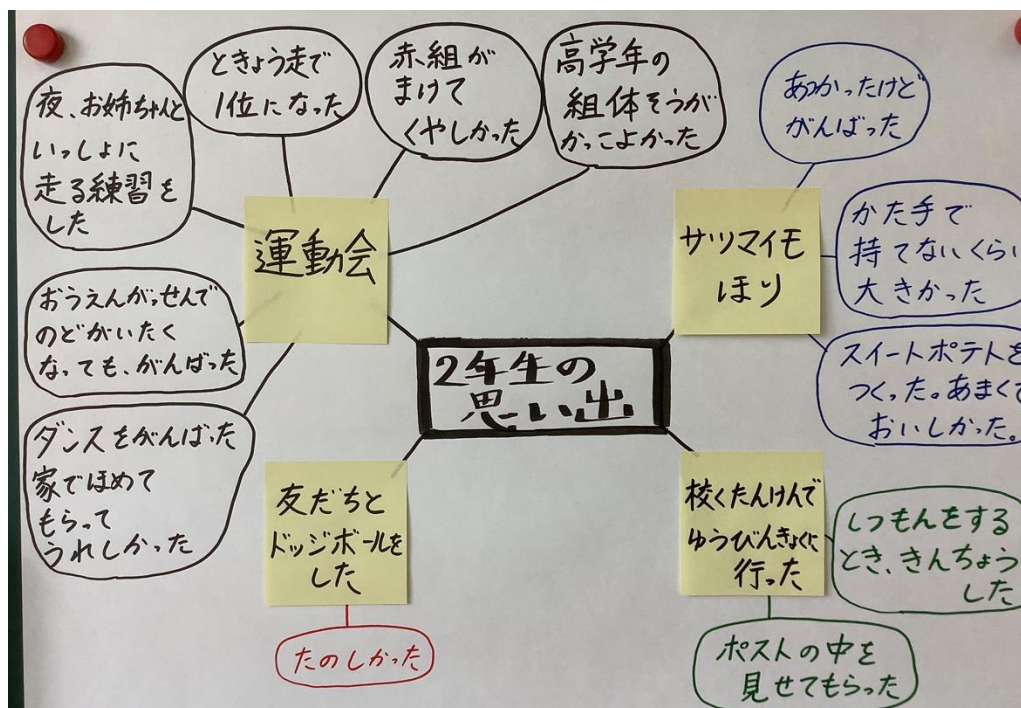 2年生の
思い出
運動会
夜、お姉ちゃんと
いっしょに
走る練習を
した
ときょう走で
1位になった
赤組が
まけて
くやしかった
高学年の
組体そうが
かっこよかった
おうえんがっせんで
のどがいたく
なっても、がんばった
ダンスをがんばった
家でほめて
もらって
うれしかった
サツマイモ
ほり
あつかったけど
がんばった
かた手で
持てないくらい
大きかった
スイートポテトを
つくった。あまくて
おいしかった。
友だちと
ドッジボールを
した
たのしかった
校くたんけんで
ゆうびんきょくに
行った
しつもんをする
とき、きんちょう
した
ポストの中を
見せてもらった